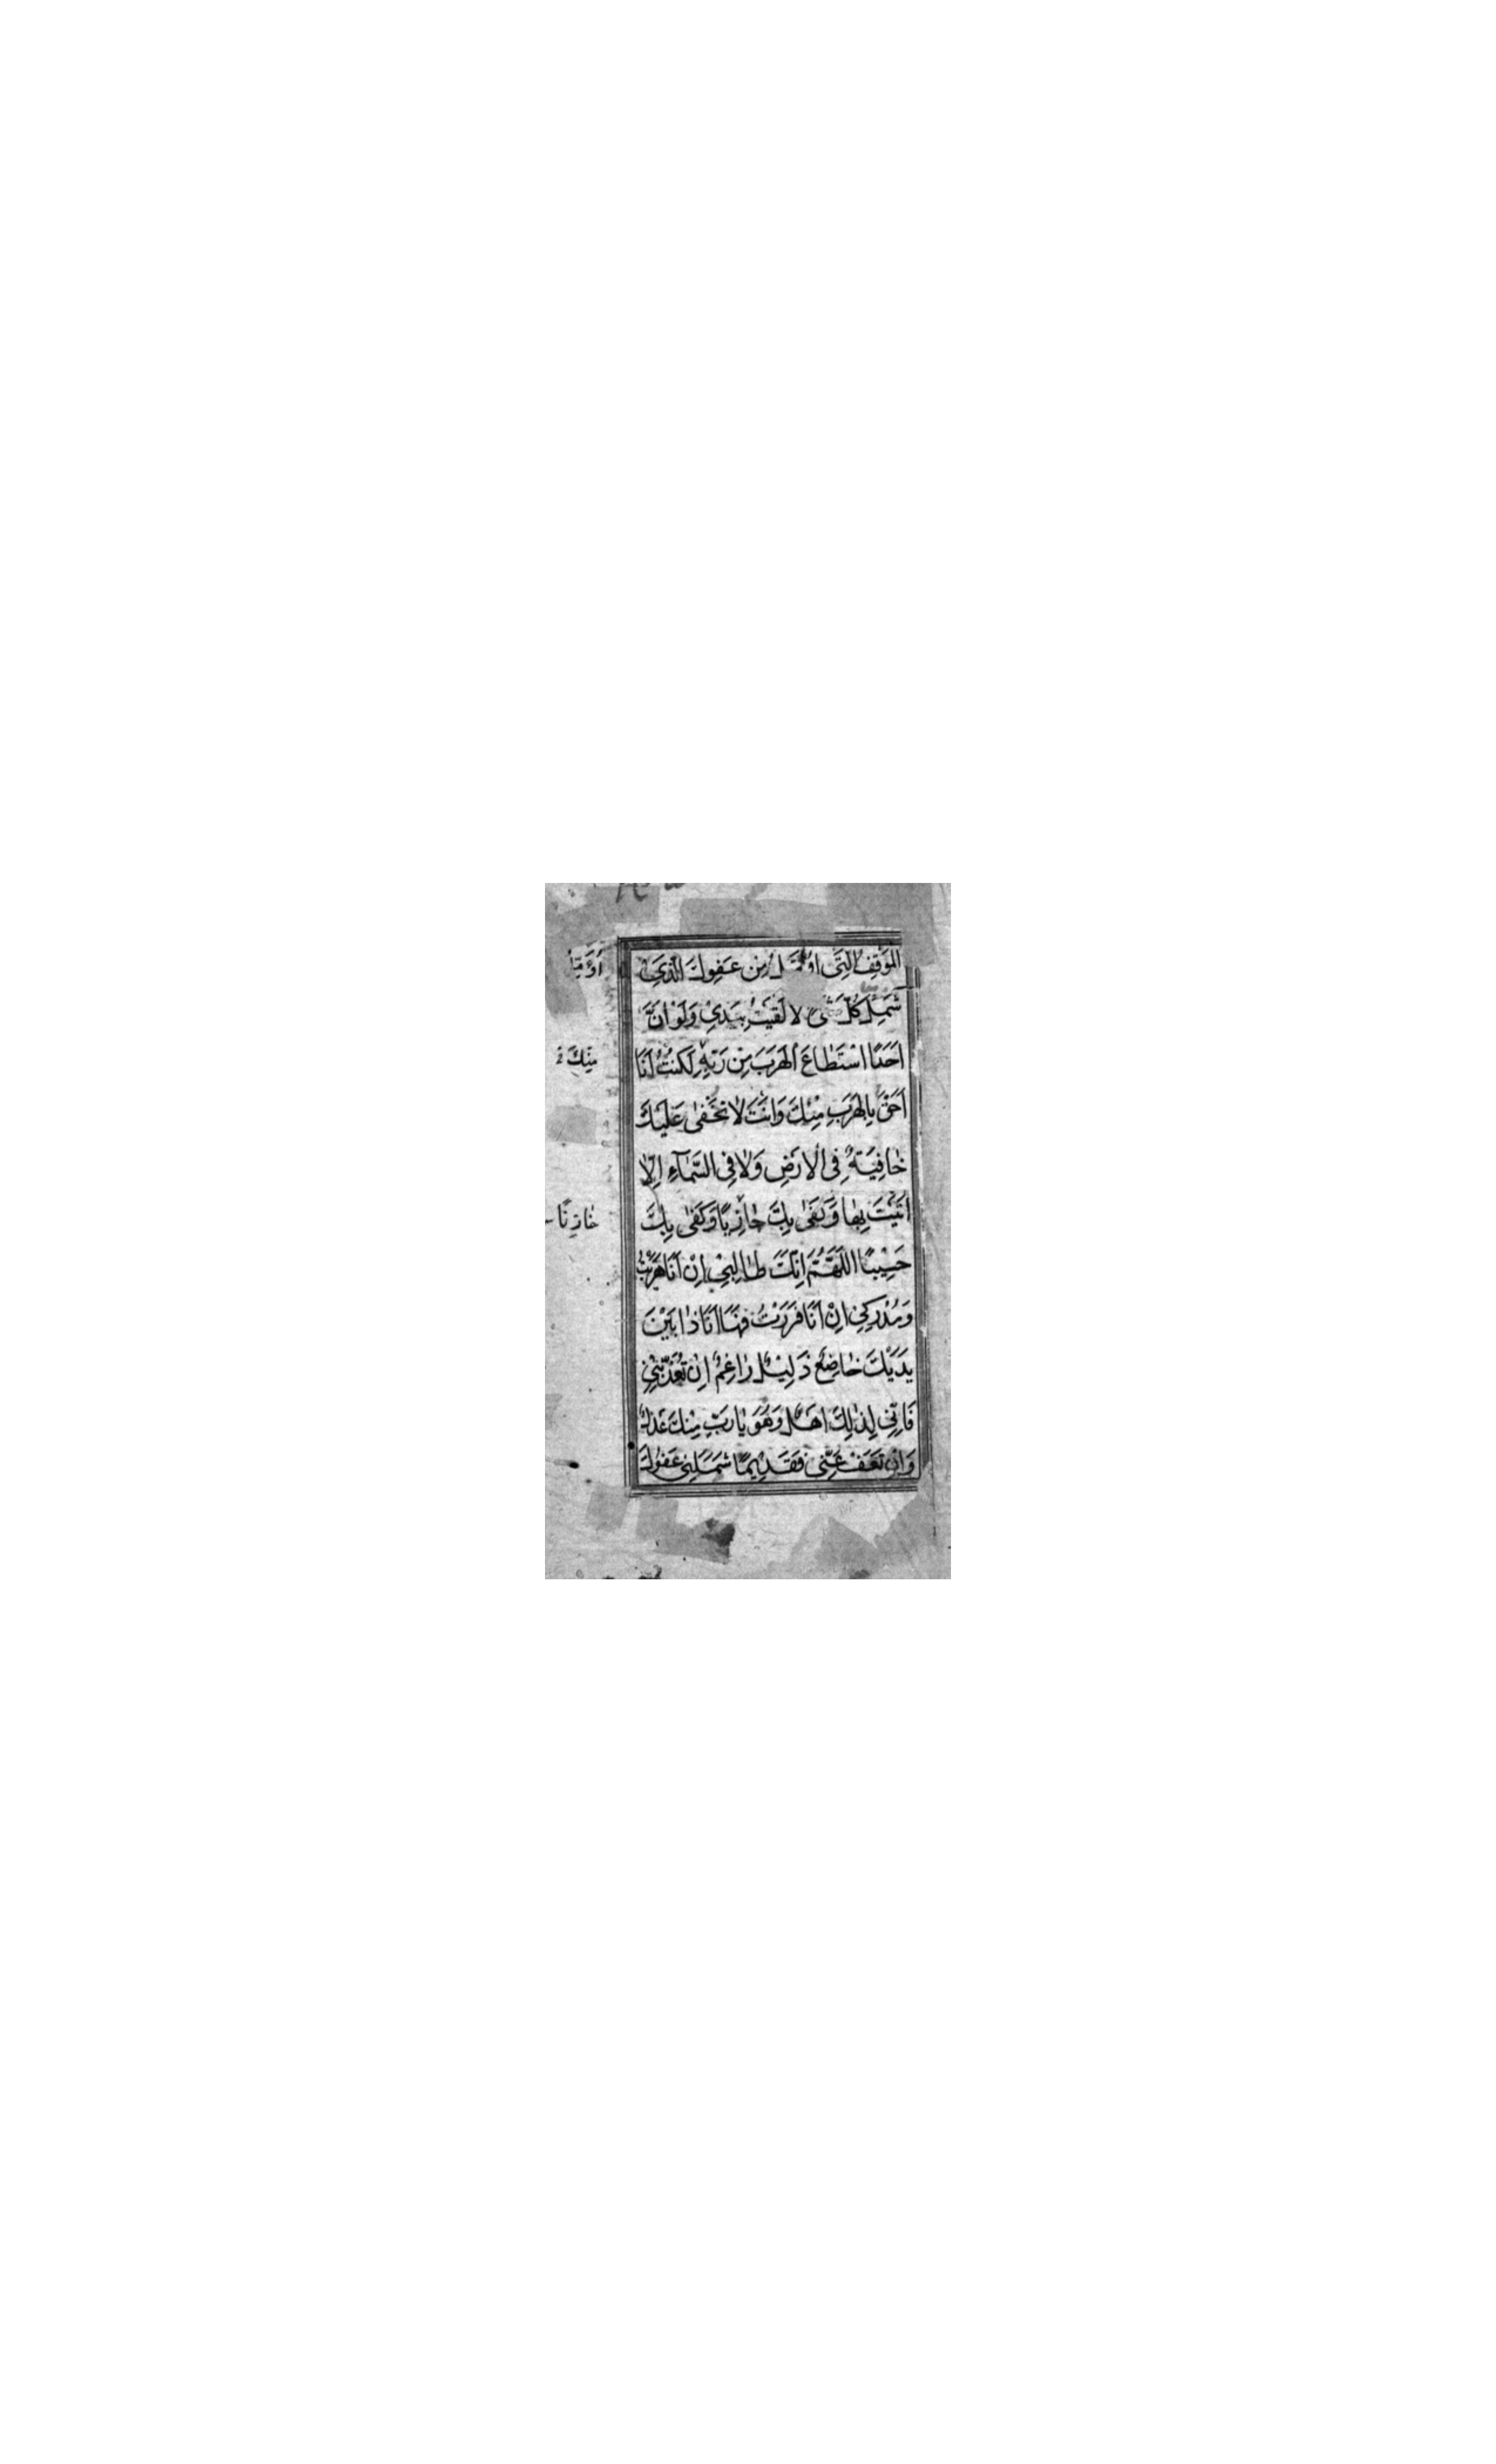 المَوَقِفِ الَّتَي اُؤَمِّلُ مِن عَفوِكَ الَّذي
شَمِلَ كُلَّ شَيْ لَا لَقَيتُ بِيَدي وَلَوْ اَنَّ
اَحَدًا اسْتَطاعَ الهَرَبَ مِن رَبِّهِ لَكُنتُ اَنَا
اَحَقَّ بِالهَرَبِ مِنْكَ وَاَنْتَ لا تَخفىٰ عَلَيكَ
خافِيَةٌ فِي الاَرضِ وَلا فِي السَّمآءِ اِلّا
اَتَيْتَ بِها وَكَفىٰ بِكَ جازِيًا وَكَفىٰ بِكَ
حَسِيْبًا اَللّٰهُمَّ اِنَّكَ طالِبِي اِنْ اَنَا هَرَبْتُ
وَمُدْرِكِي اِنْ اَنَا فَرَرْتُ فَهَا اَنَا ذا بَيْنَ
يَدَيْكَ خاضِعٌ ذَلِيْلٌ راغِمٌ اِن تُعَذِّبْنِي
فَاِنِّي لِذٰلِكَ اَهلٌ وَهُوَ يا رَبِّ مِنْكَ عَدْلٌ
وَاِن تَعفُ عَنِّي فَقَدِيمًا شَمَلَنِي عَفوُكَ
مِنْكَ